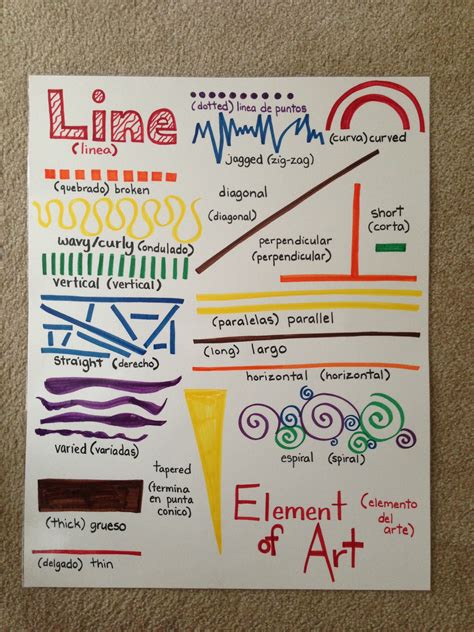 Line
(linea)
(dotted) linea de puntos
jagged (zig-zag)
(curva) curved
(quebrado) broken
diagonal
(diagonal)
short
(corta)
wavy/curly (ondulado)
perpendicular
(perpendicular)
vertical (vertical)
(paralelas) parallel
(long) largo
straight (derecho)
horizontal (horizontal)
varied (variadas)
espiral (spiral)
tapered
(termina
en punta
conico)
(thick) grueso
(delgado) thin
Element
of Art
(elemento
del
arte)